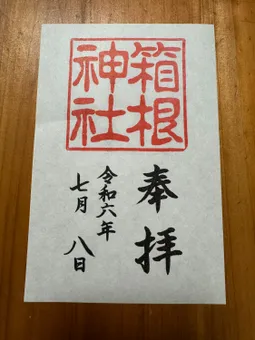 箱根
神社
奉拝
令和六年
七月 八日